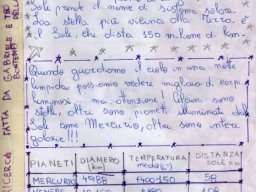 sole prende il nome di sistema solare.
La stella più vicina alla Terra è
il Sole, che dista 150 milioni di km.
Quando guardiamo il cielo in una notte
limpida possiamo vedere migliaia di corpi
luminosi ma, attenzione alcuni sono
stelle, altri sono pianeti illuminati dal
Sole come Mercurio, altri sono intere
galassie!!!
PIANETI DIAMETRO (km) TEMPERATURA media(°) DISTANZA SOLE Km
MERCURIO 4988 +400-150 58
VENERE
RICERCA FATTA DA GABRIELE E